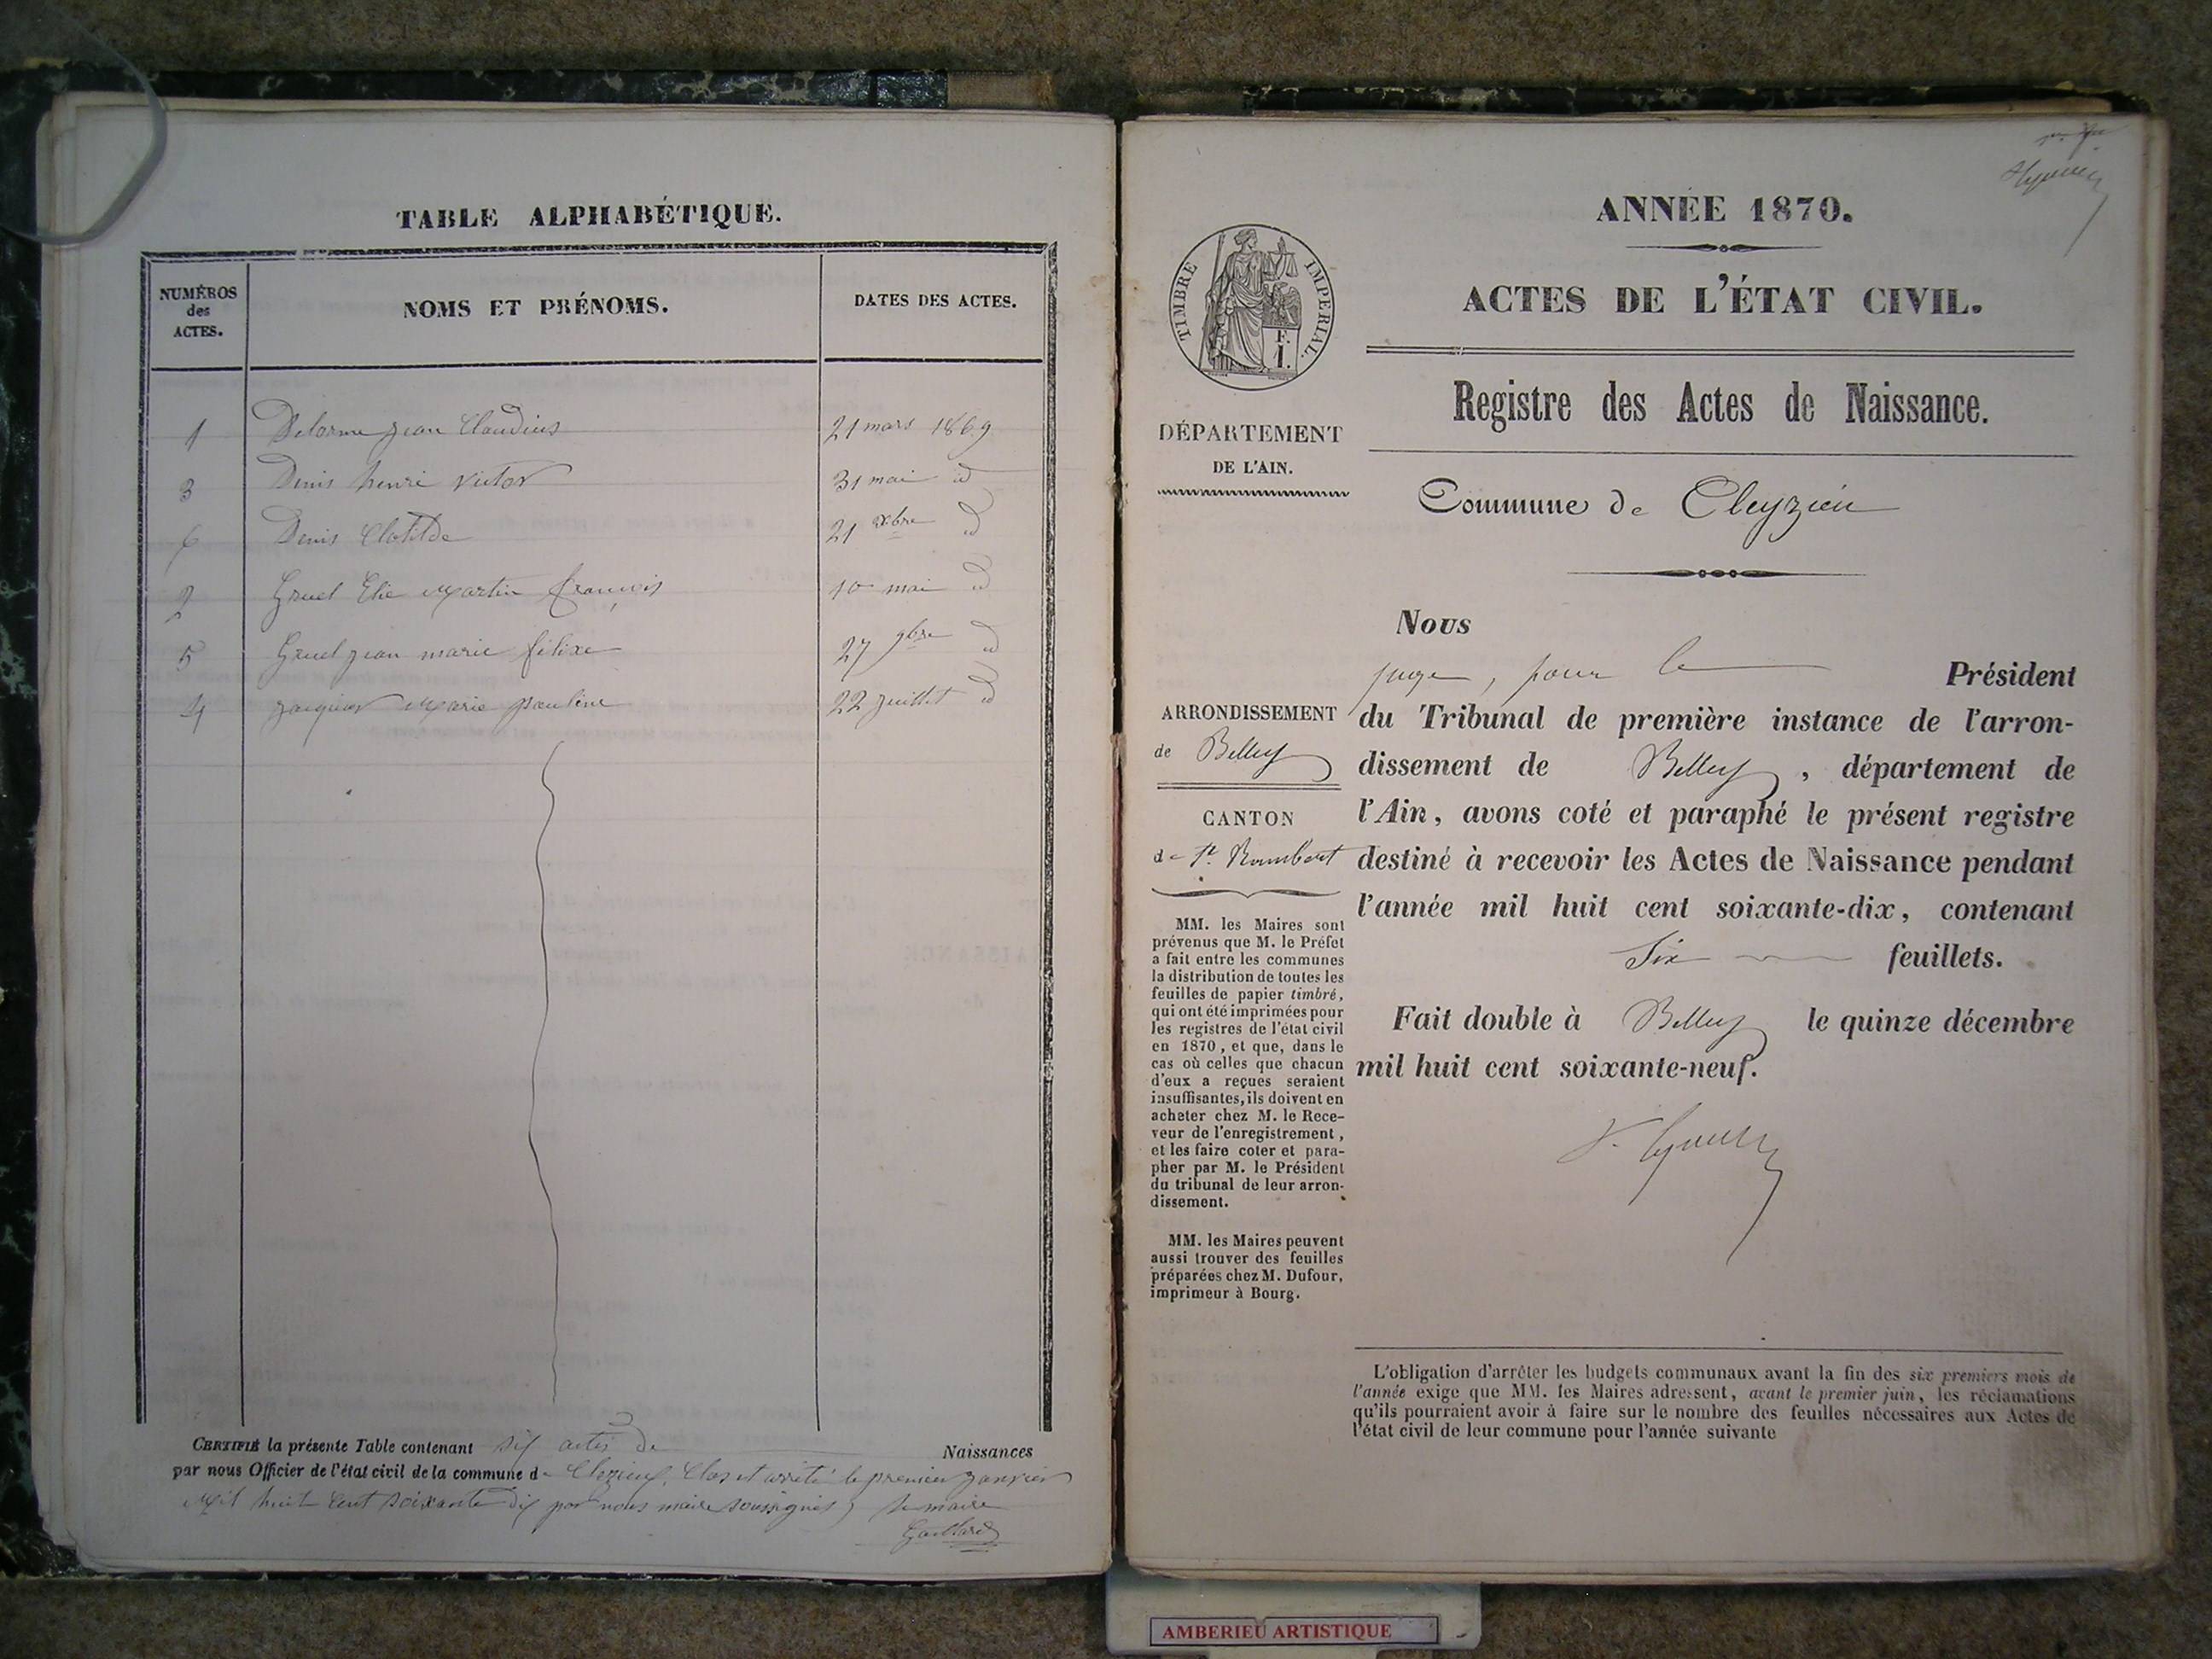 TABLE ALPHABÉTIQUE.
NUMÉROS
des
ACTES.
NOMS ET PRÉNOMS.
DATES DES ACTES.
1 Delorme jean Claudius 21 mars 1869
3 Denis henri victor 31 mai id
6 Denis Clotilde 21 xbre id
2 Gruel Elie Martin françois 10 mai id
5 Gruel jean marie félixe 27 9bre id
4 jacquier Marie pauline 22 juillet id
CERTIFIÉ la présente Table contenant six actes de Naissances
par nous Officier de l'état civil de la commune d Cleyzieu, Clos et arrêté le premier janvier
Mil huit Cent soixante dix par nous maire soussignés, le maire
Gaillard
ANNÉE 1870.
ACTES DE L'ÉTAT CIVIL.
Registre des Actes de Naissance.
Commune de Cleyzieu
TIMBRE IMPERIAL.
F.
1.
DÉPARTEMENT
DE L'AIN.
ARRONDISSEMENT
de Belley
CANTON
de St Rambert
MM. les Maires sont
prévenus que M. le Préfet
a fait entre les communes
la distribution de toutes les
feuilles de papier timbré,
qui ont été imprimées pour
les registres de l'état civil
en 1870, et que, dans le
cas où celles que chacun
d'eux a reçues seraient
insuffisantes, ils doivent en
acheter chez M. le Rece-
veur de l'enregistrement,
et les faire coter et para-
pher par M. le Président
du tribunal de leur arron-
dissement.
MM. les Maires peuvent
aussi trouver des feuilles
préparées chez M. Dufour,
imprimeur à Bourg.
Nous
juge, pour le Président
du Tribunal de première instance de l'arron-
dissement de Belley, département de
l'Ain, avons coté et paraphé le présent registre
destiné à recevoir les Actes de Naissance pendant
l'année mil huit cent soixante-dix, contenant
Six feuillets.
Fait double à Belley le quinze décembre
mil huit cent soixante-neuf.
L'obligation d'arrêter les budgets communaux avant la fin des six premiers mois de
l'année exige que MM. les Maires adressent, avant le premier juin, les réclamations
qu'ils pourraient avoir à faire sur le nombre des feuilles nécessaires aux Actes de
l'état civil de leur commune pour l'année suivante
AMBERIEU ARTISTIQUE